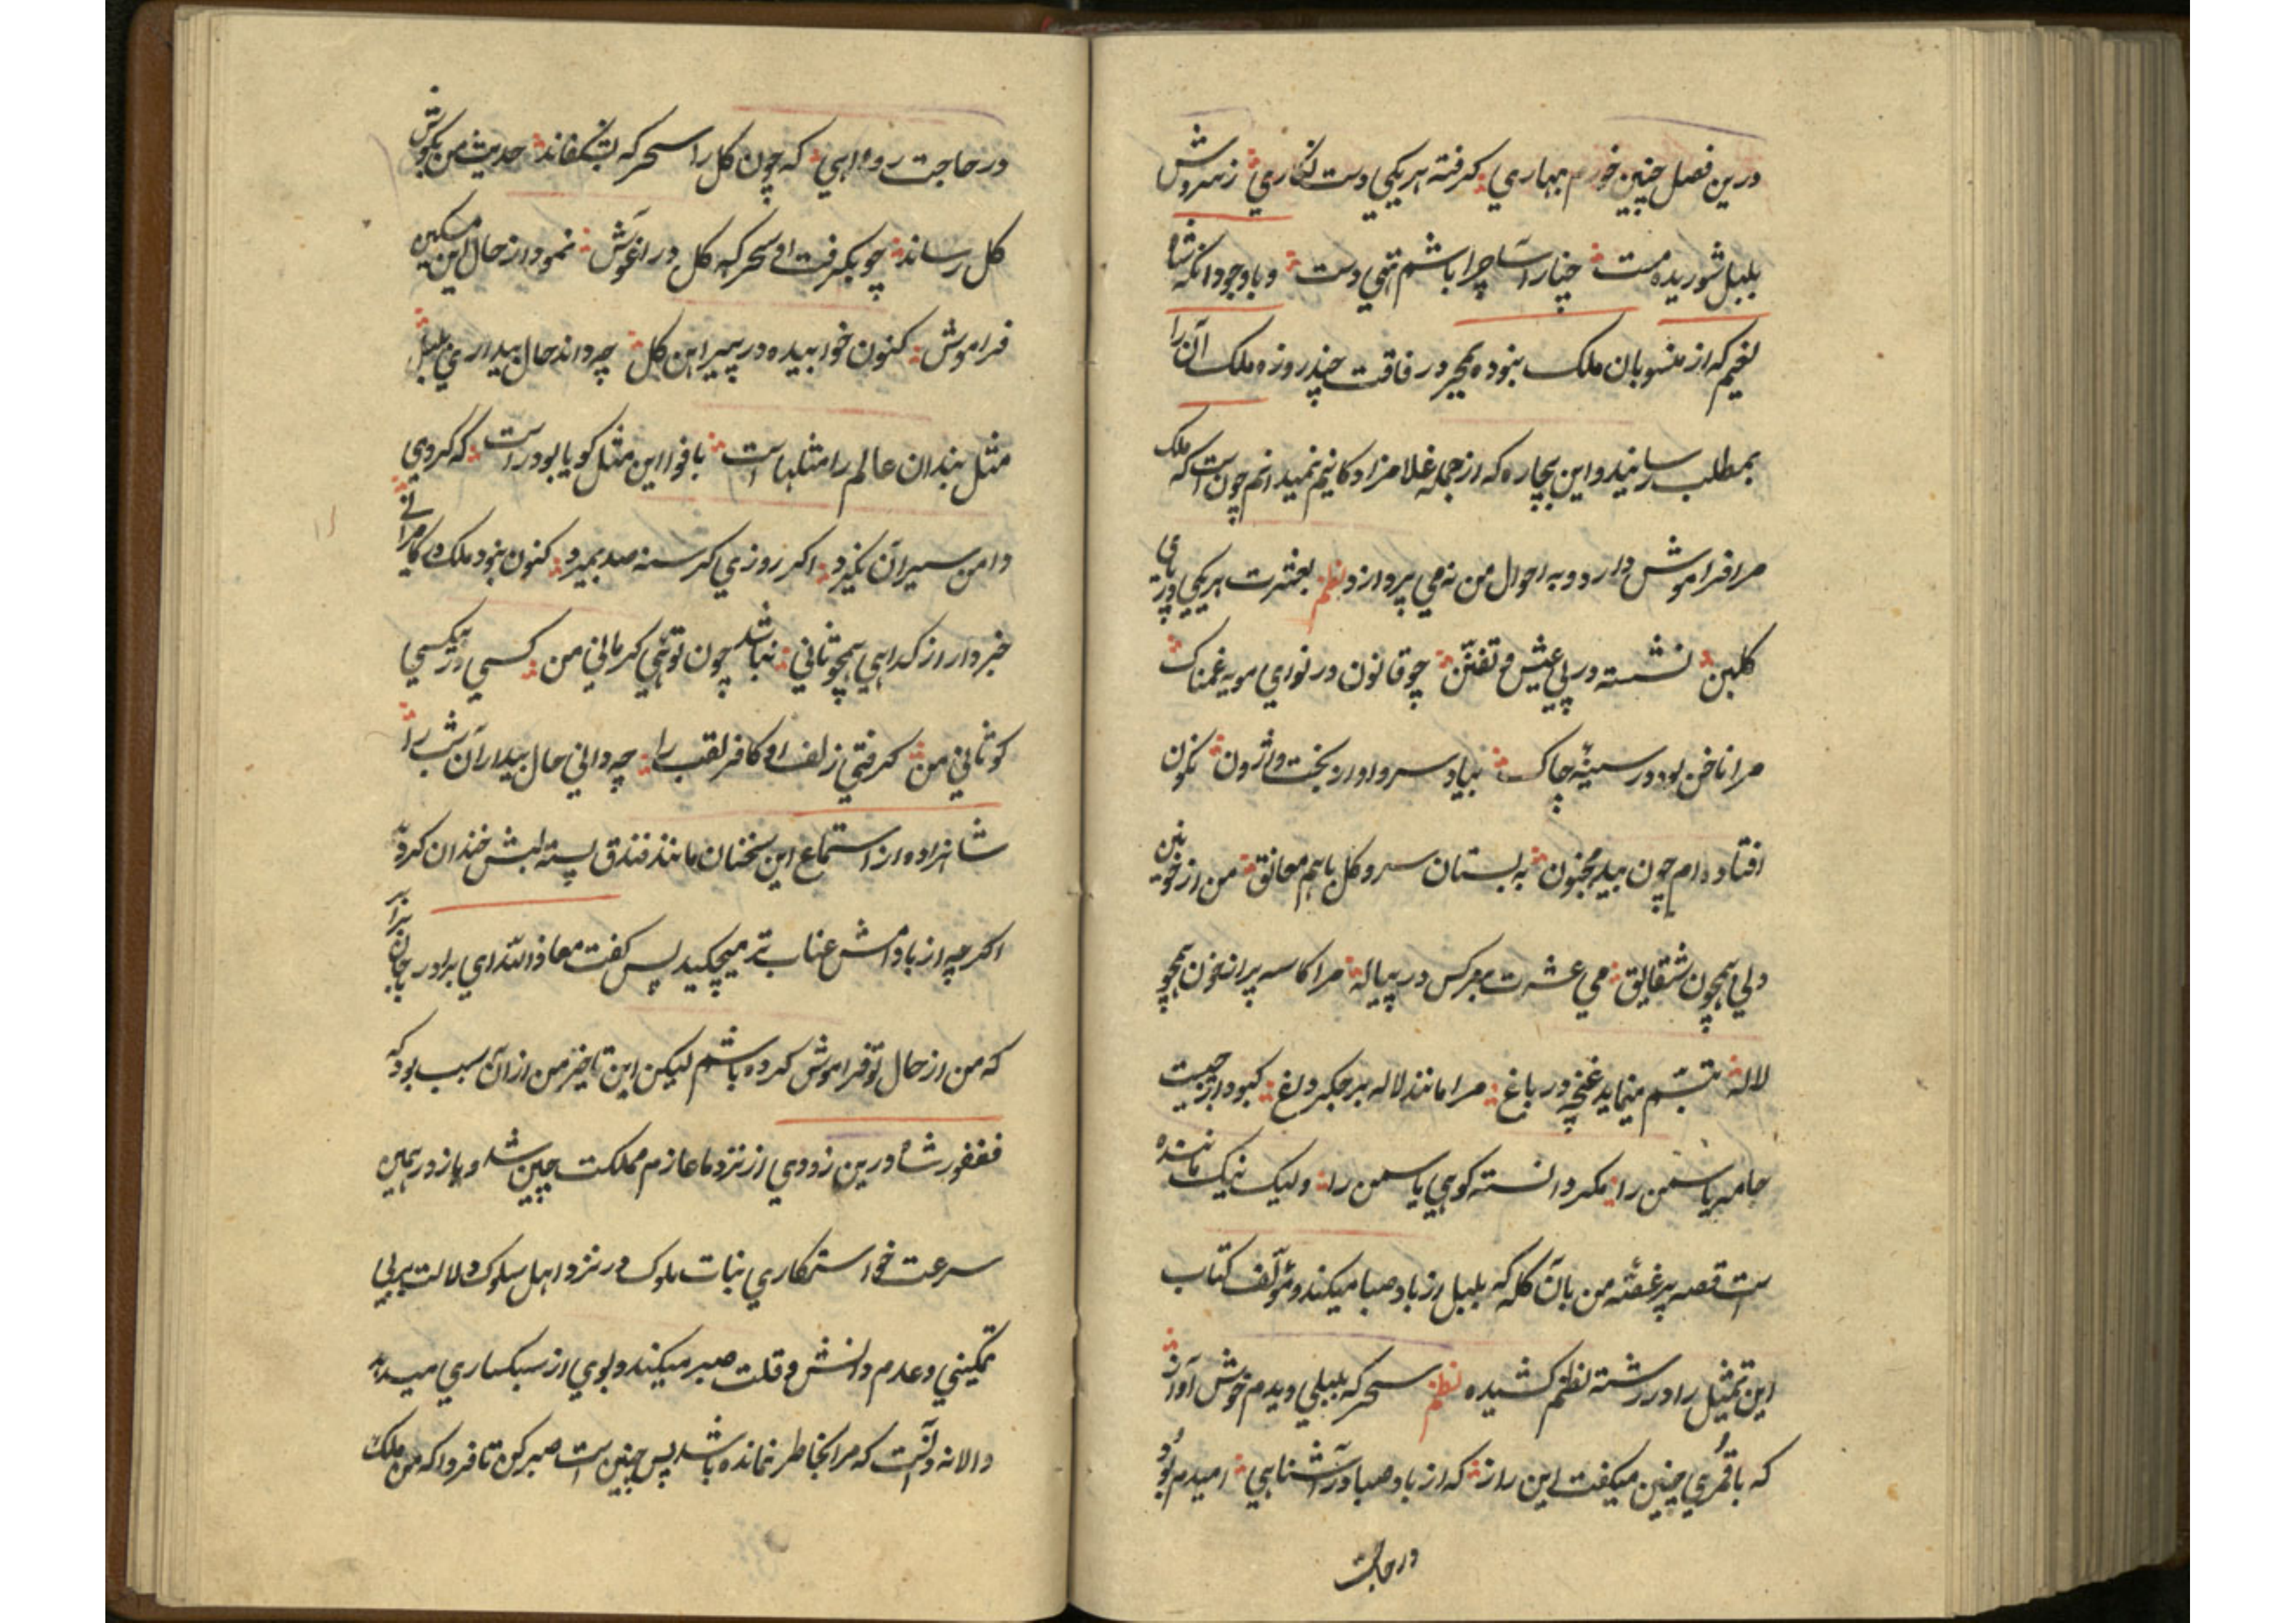 درین فصل چنین خورم بهاری گرفته هر یکی دست نگاری ز سروش
بلبل شوریده مست چنار آسا چرا باشم تهی دست و باوجود آنکه شاه
لغیم که از منسوبان ملک نبوده بمجرد رفاقت چند روزه ملک آن را
بمطلب رسانید و این بیچاره که از جمله غلامزادگانیم نمیدانم چونست که ملک
مرا فراموش دارد و به احوال من نمی پردازد نظم بعشرت هر یکی در پای
گلبن نشسته در پی عیش و تفنن چو قانون در نوای مویه غمناک
مرا ناخن بود در سینه چاک بیاد سرو او از بخت واژون نکون
افتاده ام چون بید مجنون به بستان سرو و گل باهم معانق من از خونین
دلی همچون شقایق می عشرت بهر کس در پیاله مرا کاسه پر از خون همچو
لاله تبسم مینماید غنچه در باغ مرا مانند لاله بر جگر داغ کبود از چیست
جامه یاسمن را مگر دانسته کوهی یاسمن را ولیک نیک مانده
است قصه پر غصه من بآن گله که بلبل از باد صبا میکند و مؤلف کتاب
این تمثیل را در رشته نظم کشیده نظم سحرگه بلبلی دیدم خوش آواز
که با قمری چنین میگفت این راز که از باد صبا در آشنایی امیدم بود
در حاجت
در حاجت روایی که چون گل را سحرگه بشکفاند حدیث من بگوش
گل رساند چو بگرفت او سحرگه گل در آغوش نمود از حال این مسکین
فراموش کنون خوابیده در پیراهن گل چه داند حال بیداری بلبل
مثل بندان عالم را مثلهاست با فواه این مثل گویا بود راست که گردی
دامن سیران نگیرد اگر روزی گرسنه صد بمیرد کنون نبود ملک کامرانی
خبردار از گدایی همچو ثانی نباشد چون توئی گر مانی من کسی در بیکسی
کو ثانی من گرفتی زلف او کافر لقب را چه دانی حال بیداران شب را
شاهزاده از استماع این سخنان مانند فندق پسته لبش خندان گردید
اگرچه از بادامش عناب تر میچکید پس گفت معاذ الله ای برادر بجان برابر
که من از حال تو فراموش کرده باشم لیکن این تاخیر من از آن سبب بود که
فغفور شاه درین زودی از نزد ما عازم مملکت چین شد و باز در همین
سرعت خواستکاری بنات ملوک در نزد اهل سلوک دلالت بر بی
تمکینی و عدم دانش و قلت صبر میکند و بوی از سبکساری میدهد
والا نه دانست که مرا بخاطر نمانده باشد پس چنین است صبر کن تا فردا که من ملک